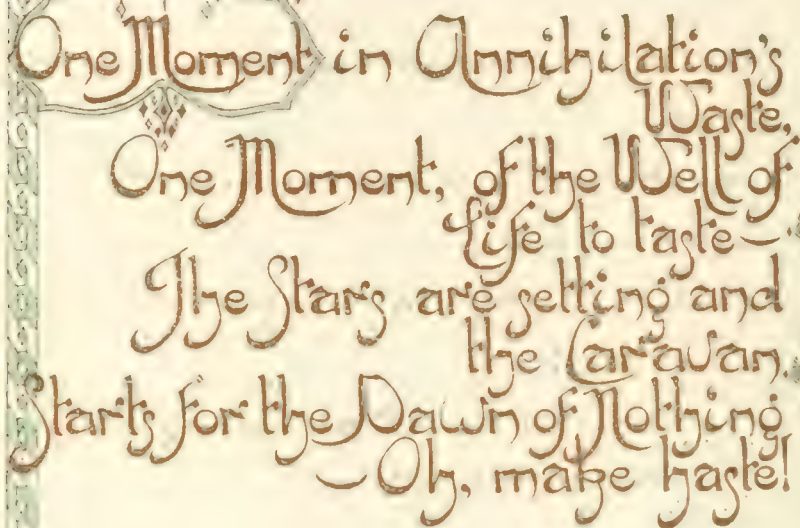 One Moment in Annihilation's
Waste,
One Moment, of the Well of
Life to taste—
The Stars are setting and
the Caravan
Starts for the Dawn of Nothing
—Oh, make haste!